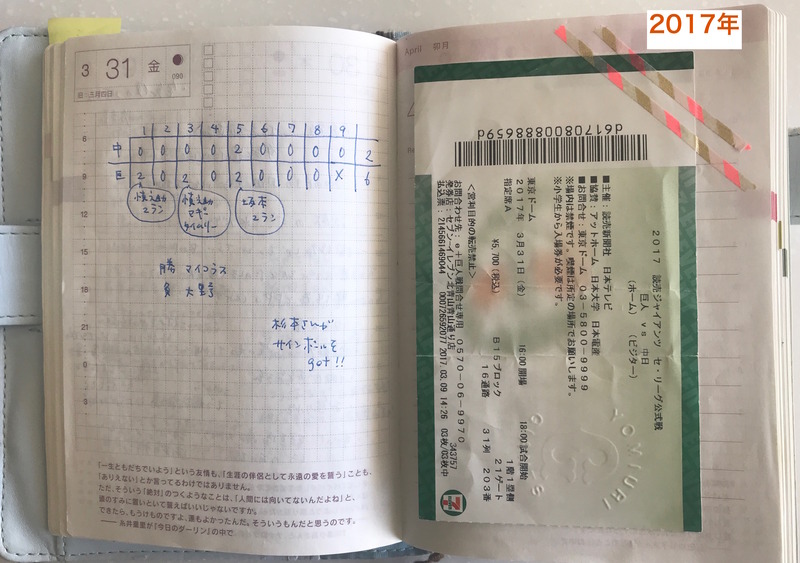 2017年
3 31 金
090
旧:三月四日
1 2 3 4 5 6 7 8 9
中 0 0 0 0 2 0 0 0 0 2
巨 2 0 2 0 2 0 0 0 X 6
慎之助
2ラン
慎之助
マギー
タイムリー
坂本
2ラン
勝 マイコラス
負 大野
杉本さんが
サインボールを
got!!
8
9
12
15
18
21
0
3
「一生ともだちでいよう」という友情も、「生涯の伴侶として永遠の愛を誓う」ことも、
「ありえない」とか言ってるわけではありません。
ただ、そういう「絶対」のつくようなことは、「人間には向いてないんだよね」と、
頭のすみに置いといて誓えばいいじゃないですか。
できたら、もうけものですよ、運もよかったんだ。そういうもんだと思うのです。
――糸井重里が『今日のダーリン』の中で
April 卯月
d6170800088888659d
2017 読売ジャイアンツ セ・リーグ公式戦
巨人 vs 中日
(ホーム) (ビジター)
■主催:読売新聞社 日本テレビ
■協賛:アットホーム 日本大学 日本電産
■お問合せ:東京ドーム 03-5800-9999
※場内は禁煙です。喫煙は所定の場所でお願いします。
※小学生から入場券が必要です。
東京ドーム
2017年 3月31日(金) 16:00開場 18:00試合開始
指定席A 1階1塁側
¥5,700(税込) B15ブロック 21ゲート
16通路 31列 203番
<営利目的の転売禁止>
お問い合わせ先:e+巨人戦問合せ専用 0570-06-9970
発券店:セブン-イレブン北青山青山通り店 343757
払込票:2145661469044 000726592077 2017.03.09 14:26 03枚/03枚中
YOMIURI
GIANTS